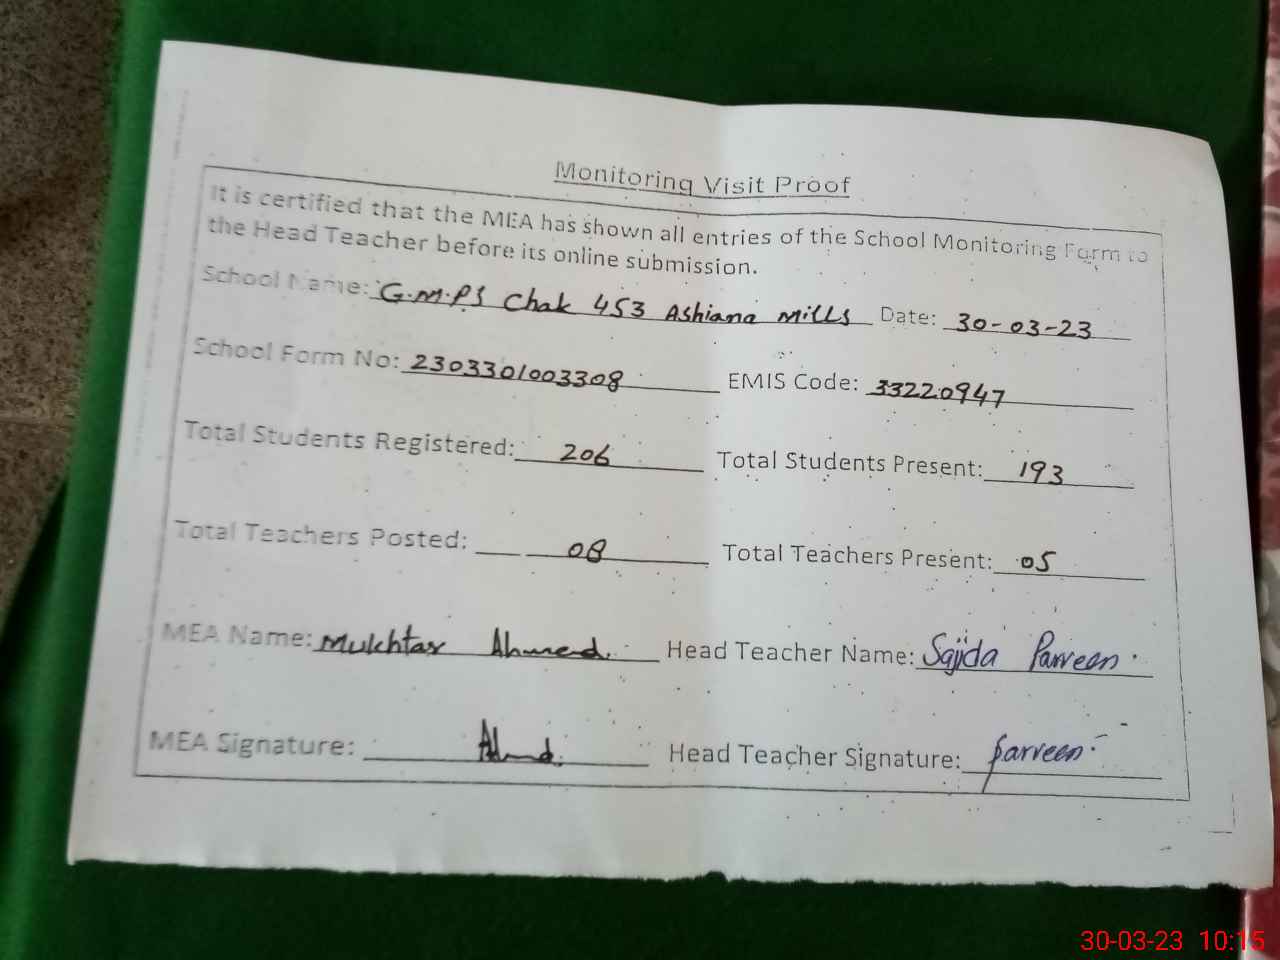 Monitoring Visit Proof
It is certified that the MEA has shown all entries of the School Monitoring Form to
the Head Teacher before its online submission.
School Name: G.M.P.S Chak 453 Ashiana Mills Date: 30-03-23
School Form No: 2303301003308 EMIS Code: 33220947
Total Students Registered: 206 Total Students Present: 193
Total Teachers Posted: 08 Total Teachers Present: 05
MEA Name: Mukhtar Ahmed. Head Teacher Name: Sajida Parveen.
MEA Signature: Ahmd. Head Teacher Signature: Parveen
30-03-23 10:15